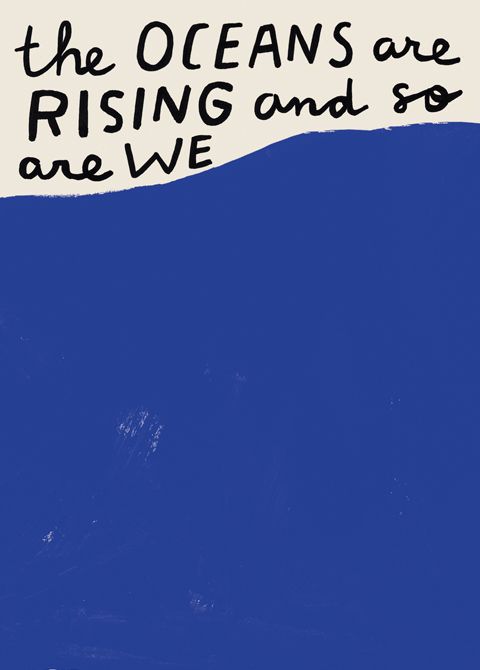 the OCEANS are
RISING and so
are WE